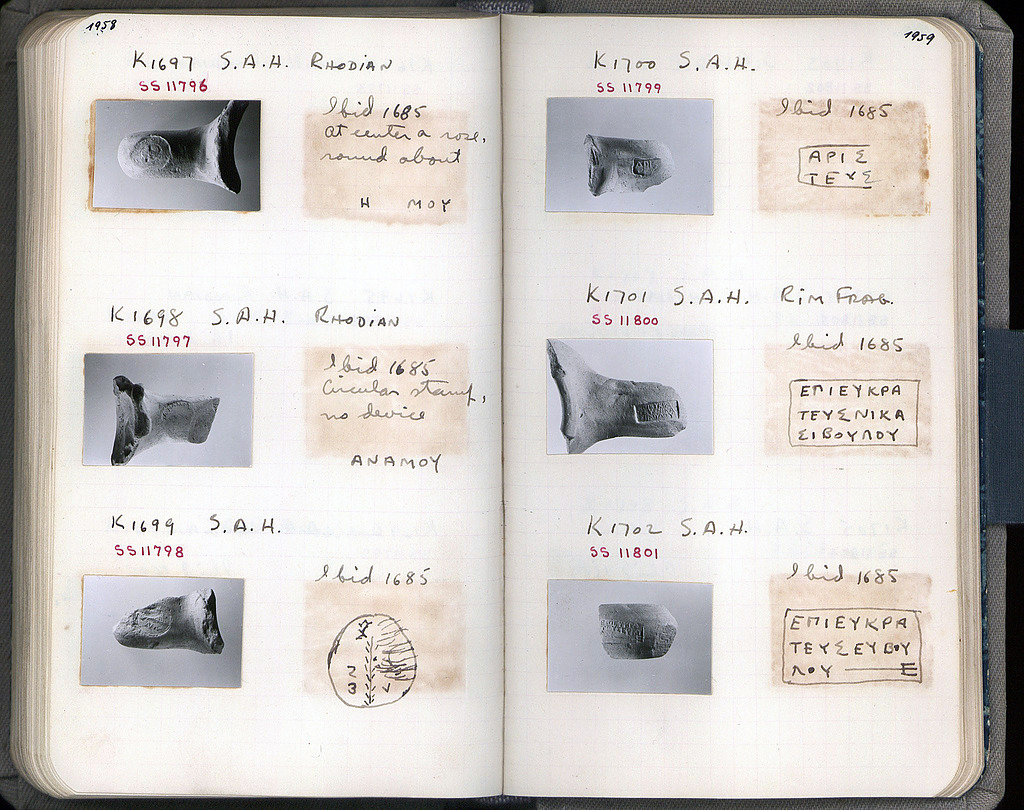 1958
K1697 S.A.H. RHODIAN
SS 11796
Ibid 1685
At center a rose,
round about
H ΜΟΥ
K1698 S.A.H. RHODIAN
SS 11797
Ibid 1685
Circular stamp,
no device
ΑΝΑΜΟΥ
K1699 S.A.H.
SS 11798
Ibid 1685
1959
K1700 S.A.H.
SS 11799
Ibid 1685
ΑΡΙΣ
ΤΕΥΣ
K1701 S.A.H. RIM FRAG.
SS 11800
Ibid 1685
ΕΠΙΕΥΚΡΑ
ΤΕΥΣΝΙΚΑ
ΣΙΒΟΥΛΟΥ
K1702 S.A.H.
SS 11801
Ibid 1685
ΕΠΙΕΥΚΡΑ
ΤΕΥΣΕΥΒΟΥ
ΛΟΥ — Ε